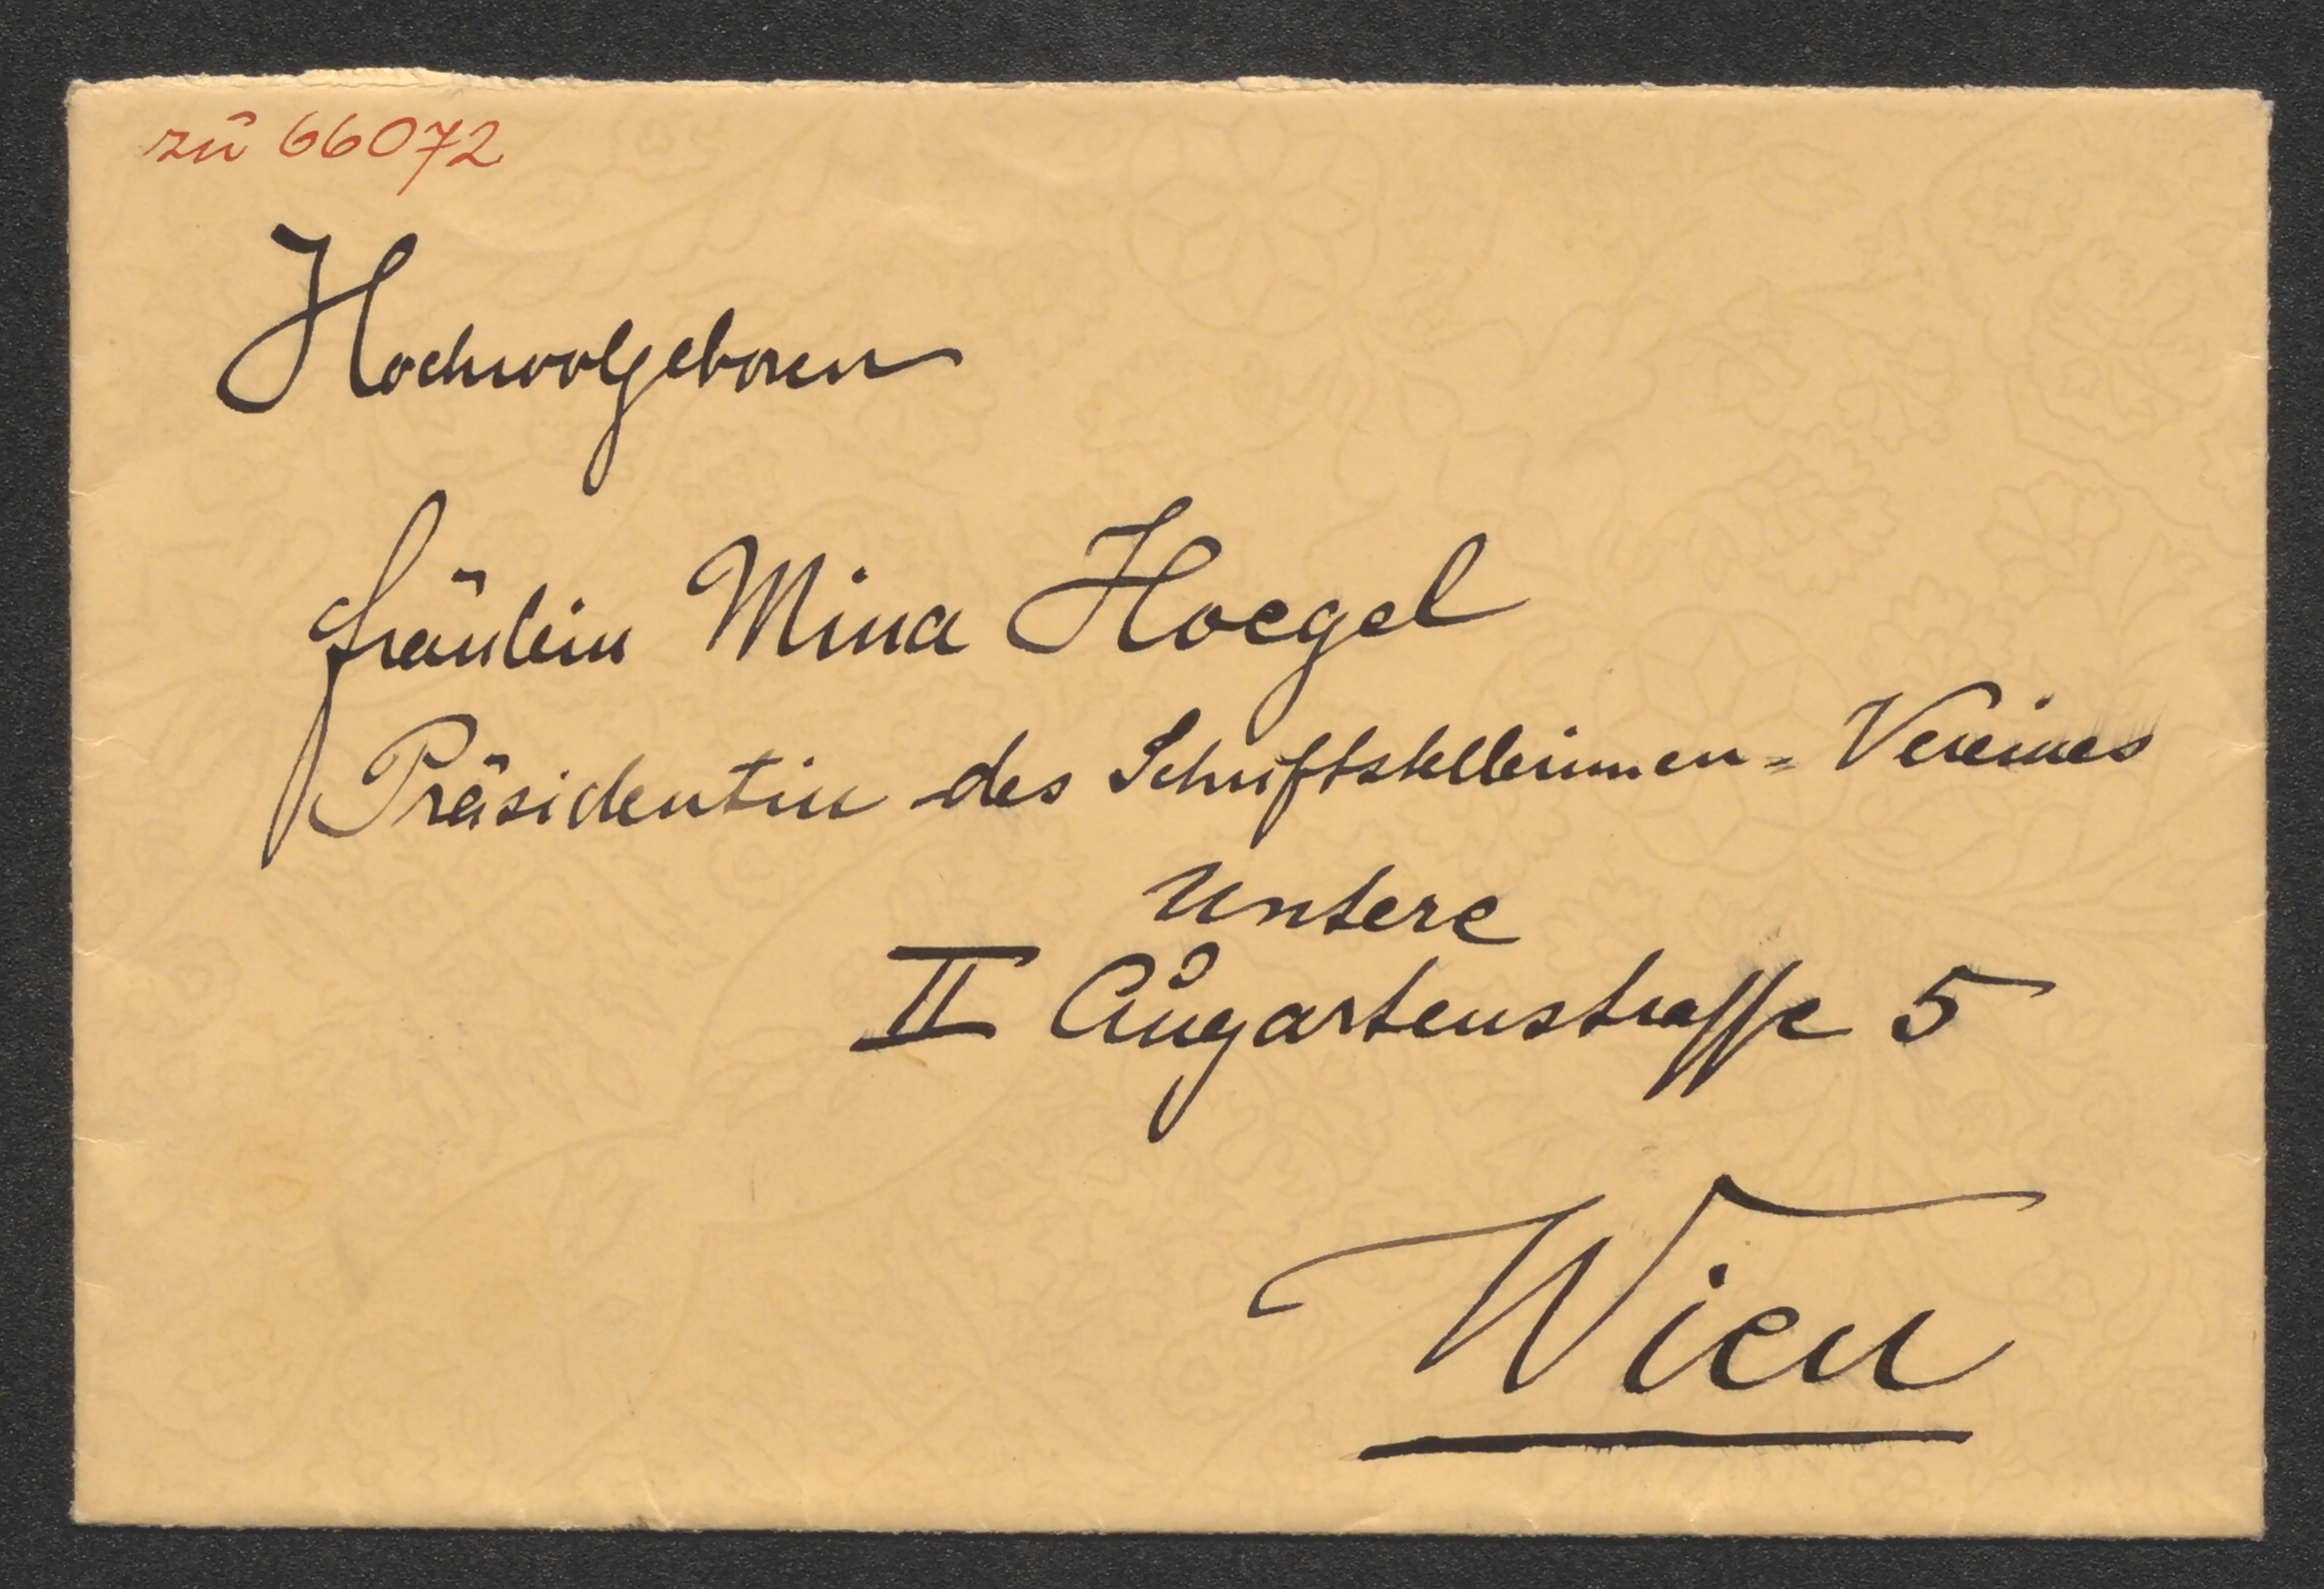 zu 66072
Hochwolgeboren
Fräulein Mina Hoegel
Präsidentin des Schriftstellerinnen-Vereines
Untere
II Augartenstraße 5
Wien